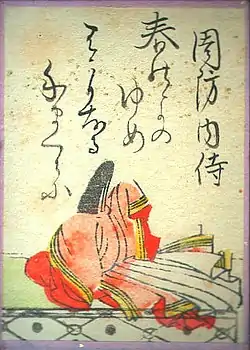 周防内侍
春の夜の
ゆめ
はかりなる
手まくらに